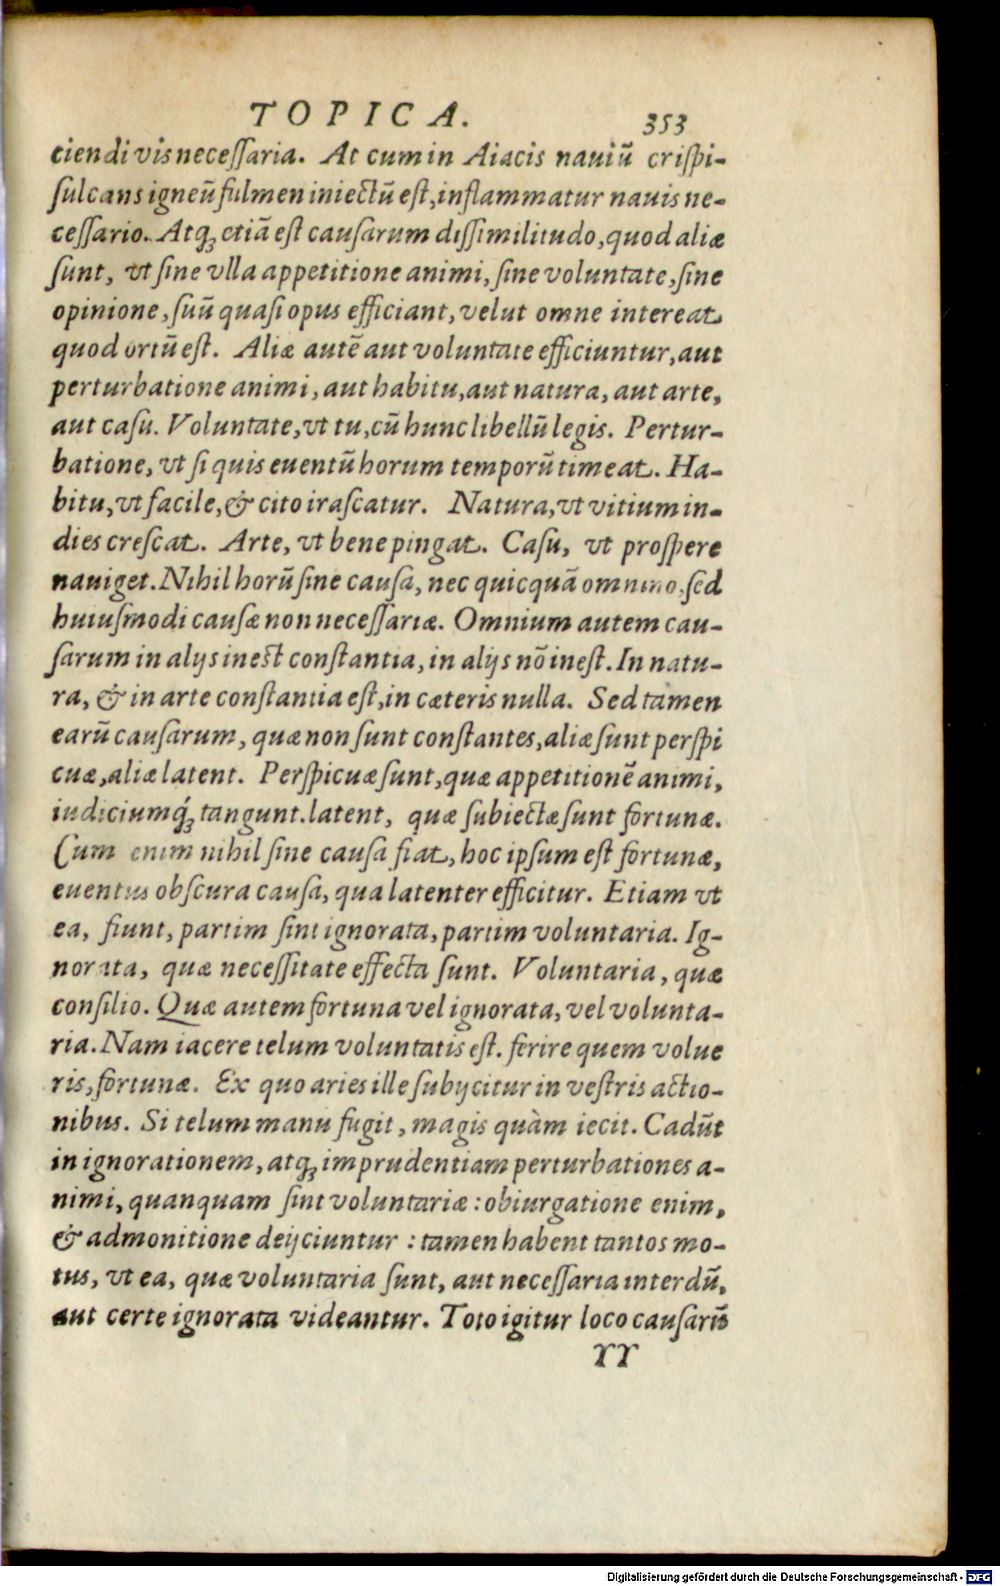 TOPICA. 353
ciendi vis necessaria. At cum in Aiacis nauiū crispi-
sulcans igneū fulmen iniectū est, inflammatur nauis ne-
cessario. Atq; etiā est causarum dissimilitudo, quod aliæ
sunt, vt sine vlla appetitione animi, sine voluntate, sine
opinione, suū quasi opus efficiant, velut omne intereat
quod ortū est. Aliæ autē aut voluntate efficiuntur, aut
perturbatione animi, aut habitu, aut natura, aut arte,
aut casu. Voluntate, vt tu, cū hunc libellū legis. Pertur-
batione, vt si quis euentū horum temporū timeat. Ha-
bitu, vt facile, & cito irascatur. Natura, vt vitium in-
dies crescat. Arte, vt bene pingat. Casu, vt prospere
nauiget. Nihil horū sine causa, nec quicquā omnino, sed
huiusmodi causæ non necessariæ. Omnium autem cau-
sarum in alijs inest constantia, in alijs nō inest. In natu-
ra, & in arte constantia est, in cæteris nulla. Sed tamen
earū causarum, quæ non sunt constantes, aliæ sunt perspi
cuæ, aliæ latent. Perspicuæ sunt, quæ appetitionē animi,
iudiciumq́; tangunt. latent, quæ subiectæ sunt fortunæ.
Cum enim nihil sine causa fiat, hoc ipsum est fortunæ,
euentus obscura causa, qua latenter efficitur. Etiam vt
ea, fiunt, partim sint ignorata, partim voluntaria. Ig-
norata, quæ necessitate effecta sunt. Voluntaria, quæ
consilio. Quæ autem fortuna vel ignorata, vel volunta-
ria. Nam iacere telum voluntatis est. ferire quem volue
ris, fortunæ. Ex quo aries ille subijcitur in vestris actio-
nibus. Si telum manu fugit, magis quàm iecit. Cadūt
in ignorationem, atq; imprudentiam perturbationes a-
nimi, quanquam sint voluntariæ : obiurgatione enim,
& admonitione deijciuntur : tamen habent tantos mo-
tus, vt ea, quæ voluntaria sunt, aut necessaria interdū,
aut certe ignorata videantur. Toto igitur loco causarū
YY
Digitalisierung gefördert durch die Deutsche Forschungsgemeinschaft - DFG